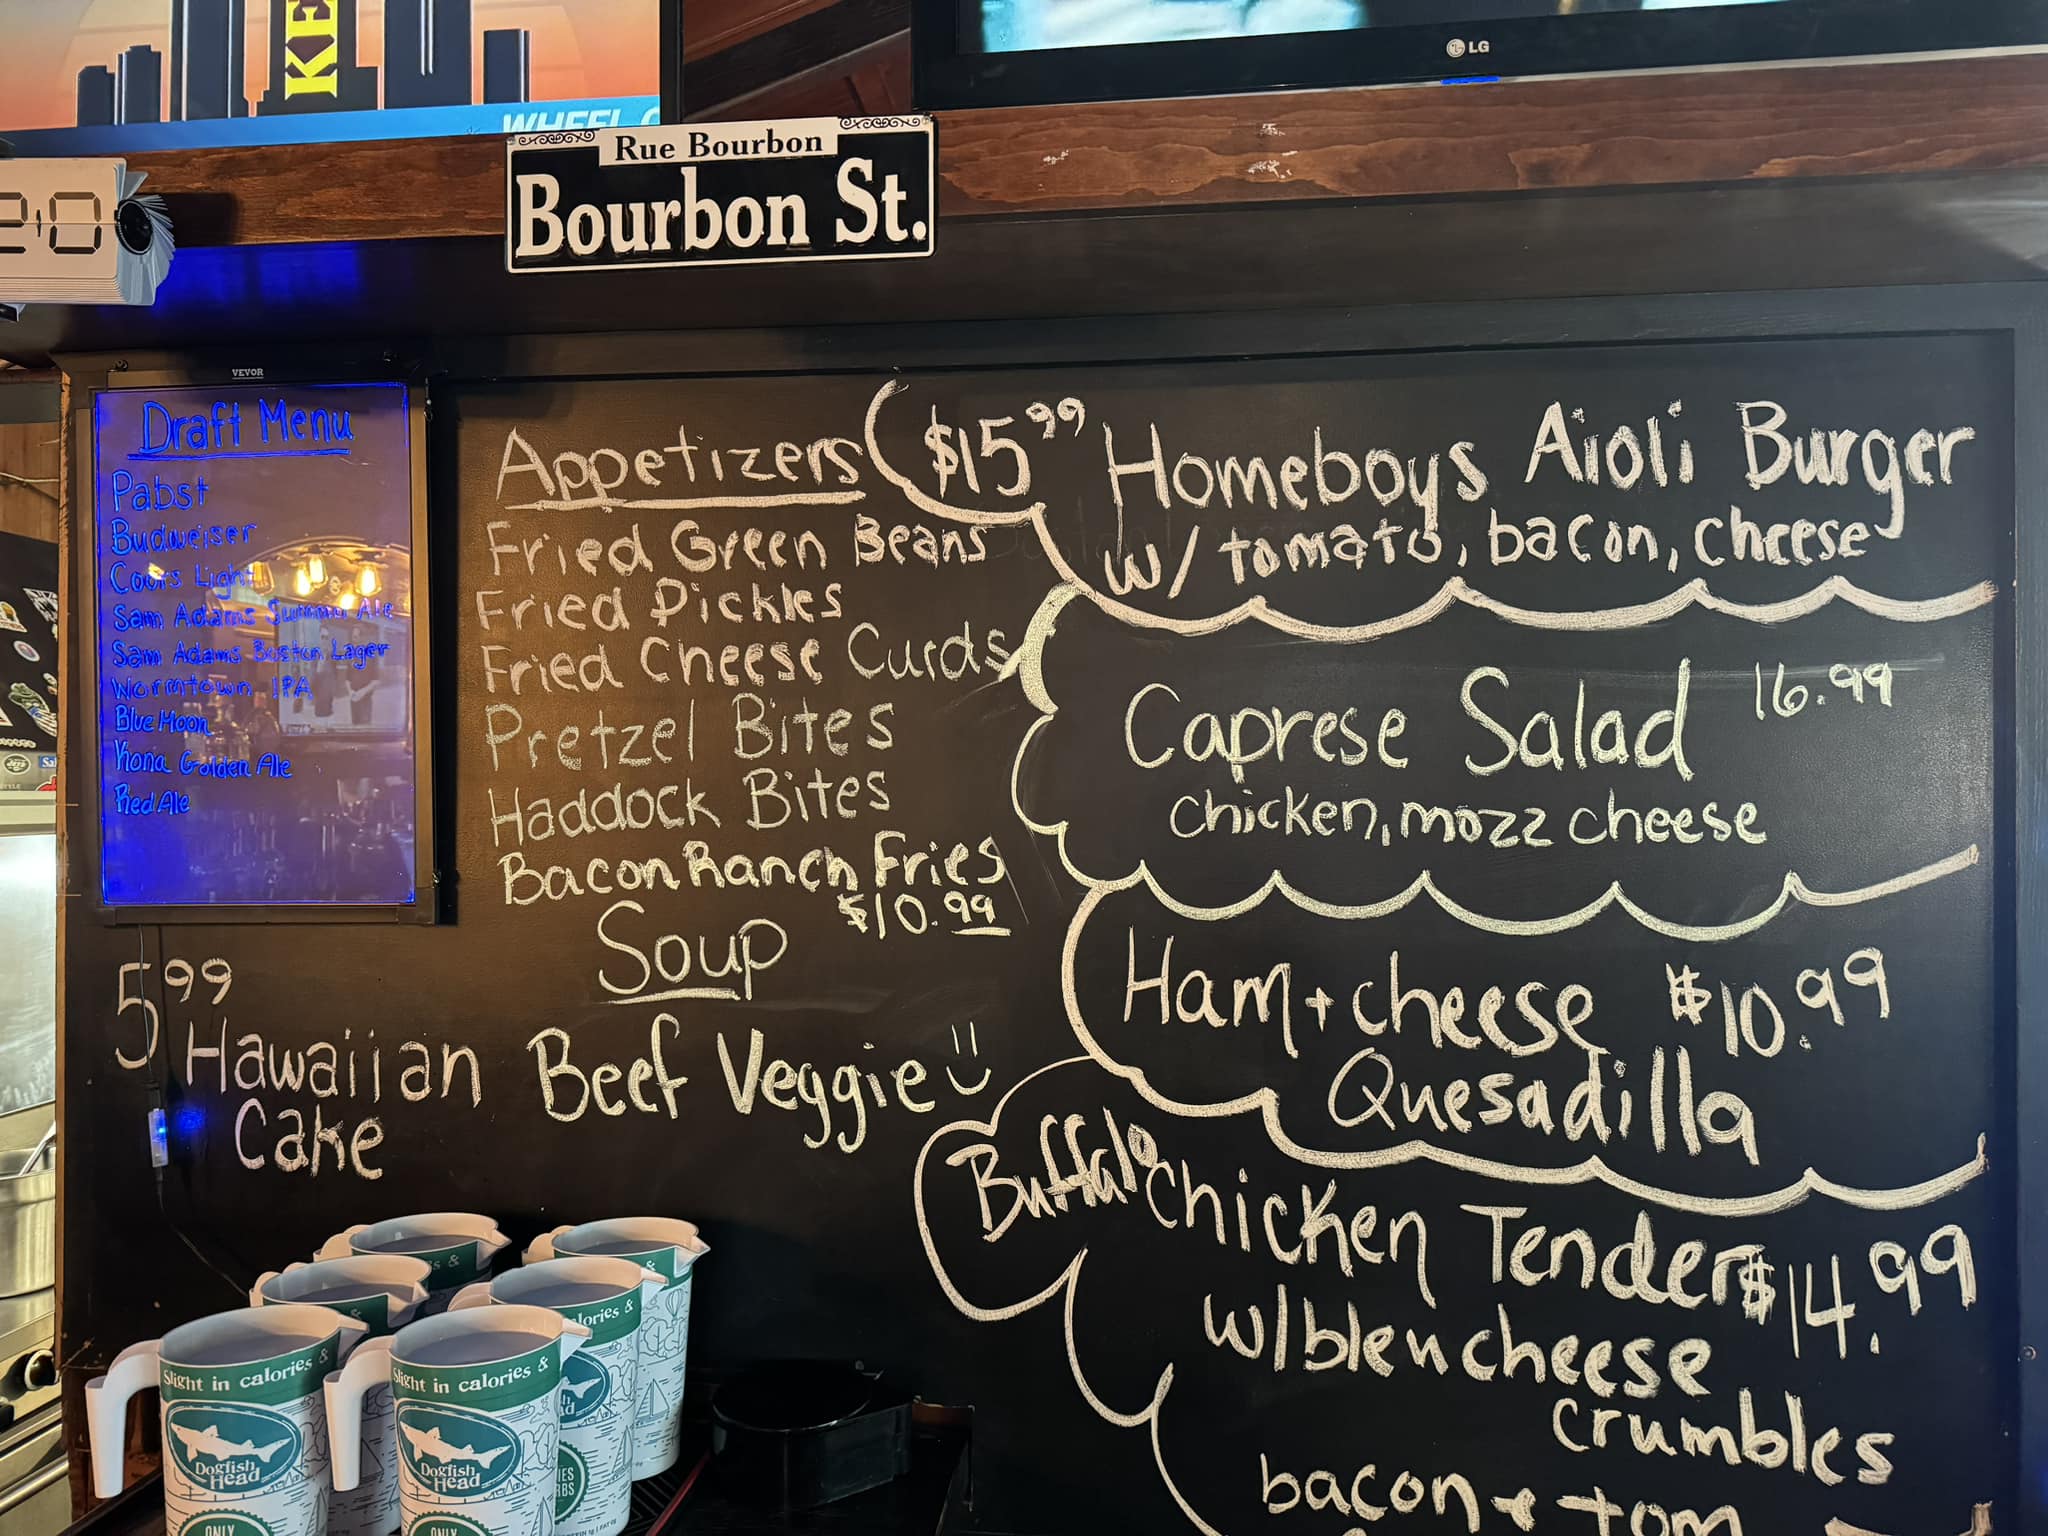 KE
WHEEL
LG
Rue Bourbon
Bourbon St.
20
VEVOR
Draft Menu
Pabst
Budweiser
Coors Light
Sam Adams Summer Ale
Sam Adams Boston Lager
Wormtown IPA
Blue Moon
Kona Golden Ale
Red Ale
5.99
Hawaiian
Cake
Appetizers
Fried Green Beans
Fried Pickles
Fried Cheese Curds
Pretzel Bites
Haddock Bites
Bacon Ranch Fries
$10.99
Soup
Beef Veggie
$15.99 Homeboys Aioli Burger
w/ tomato, bacon, cheese
Caprese Salad 16.99
chicken, mozz cheese
Ham + cheese $10.99
Quesadilla
Buffalo chicken Tender $14.99
w/ bleu cheese
crumbles
bacon + tom
Slight in calories &
Dogfish
Head
ONLY
Slight in calories &
Dogfish
Head
ONLY
alories &